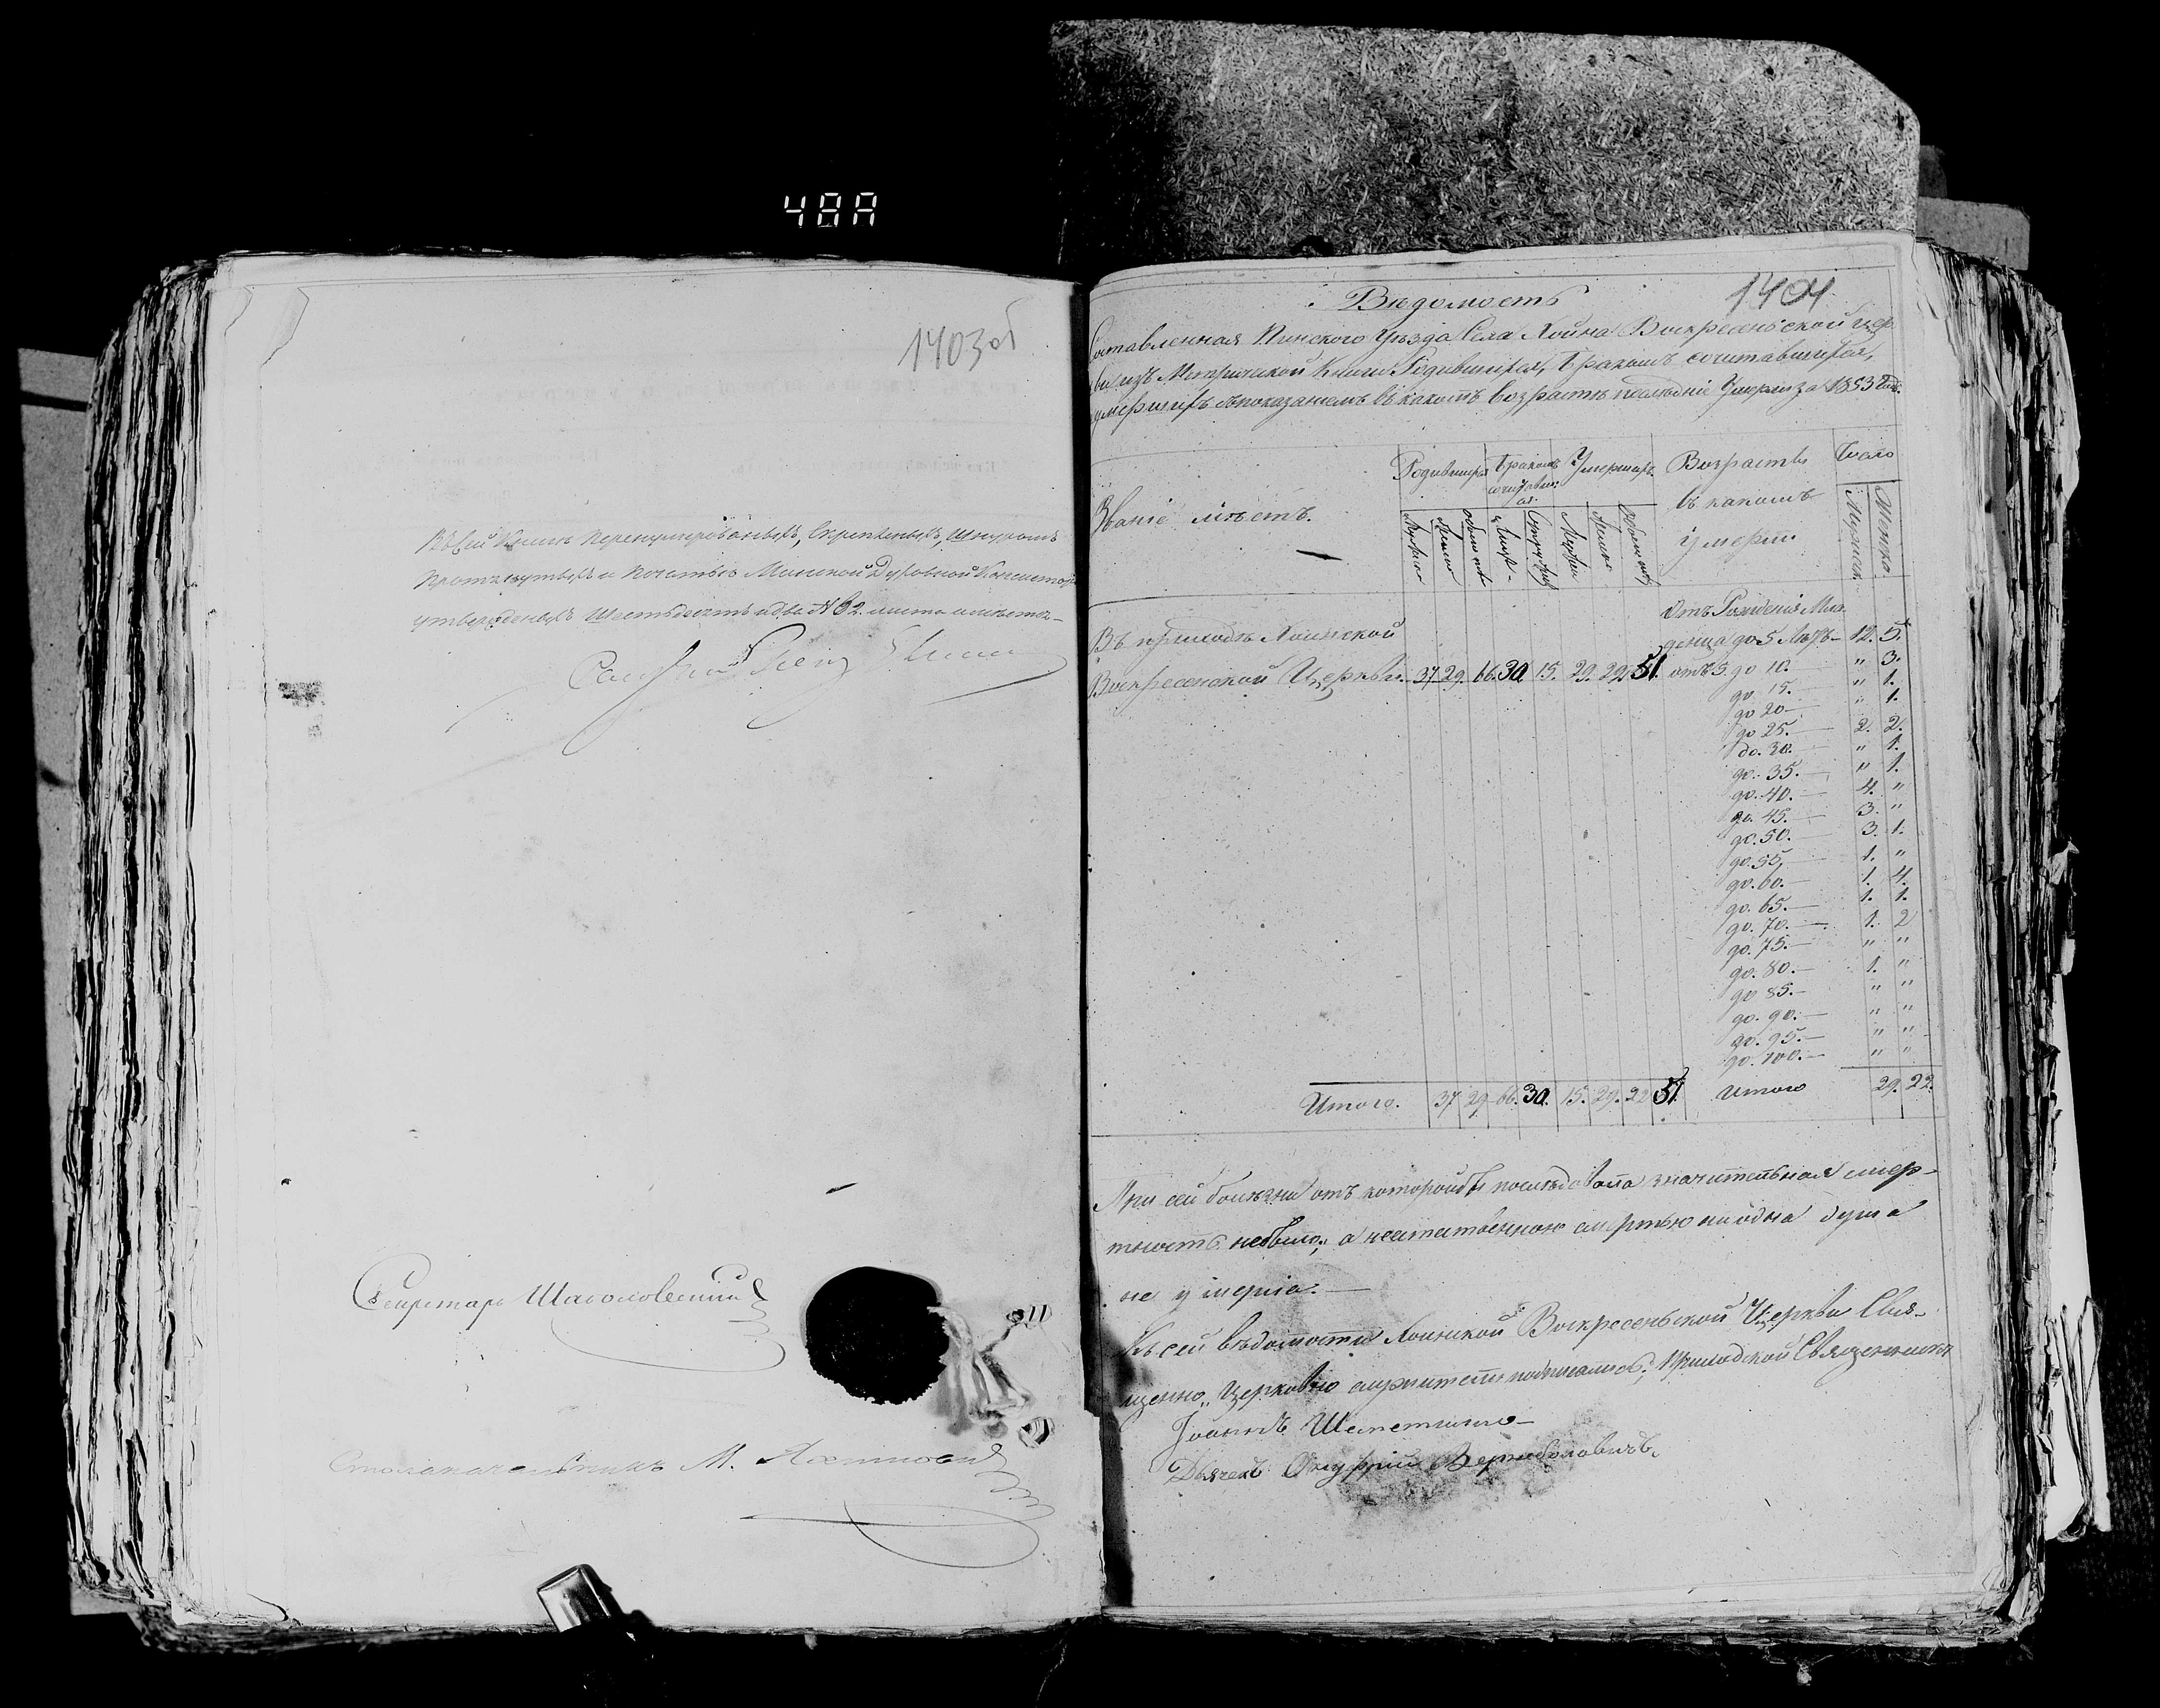 48A
1403 об
Въ сей Книгѣ перенумерованныхъ, скрепленыхъ, шнуромъ
протянутыхъ и печатью Минской Духовной Консисторіи
утвержденыхъ шестьдесятъ два № 62. листа
Секретарь
Столоначальникъ М.
1404
Вѣдомость
Составленная Пинского Уѣзда Села Хойна Воскресеньской цер
изъ Метрической Книги Родившихся, бракомъ сочитавшихся,
умершихъ съ показаніемъ въ какомъ возрастѣ последніе Умерли за 1853 годъ.
Званіе мѣстъ. Родившихся Бракомъ сочитавших ся. Умершихъ. Возрастъ въ какомъ умерли Число
Мужеска Женска Обоего пола Супруж Мужеск Женска Обоего пола Мужеска Женска.
Отъ Рожденія Мла
Въ приходѣ Хоинской денца до 5 лѣтъ 12. 5.
Воскресенской Церкви. 37 29. 66. 30. 15. 29. 22. 51. отъ 5. до 10. " 3.
до 15. " 1.
до 20 " 1.
до 25. 2. 2.
до. 30. " 1.
до. 35. " 1.
до. 40. 4. "
до. 45. 3. "
до. 50. 3. 1.
до. 55. 1. "
до. 60. 1. 4.
до. 65. 1. 1.
до. 70. 1. 2
до. 75. " "
до. 80. 1. "
до 85. " "
до. 90. " "
до. 95. " "
до. 100. " "
Итого. 37 29 66. 30. 15. 29. 22 51. Итого 29. 22.
При сей болѣзни отъ которойбъ последовала значительная смер-
тность небыло, а неестественною смертью ни одна душа
не умерла.
Къ сей вѣдомости Хоинской Воскресеньской Церкви Свя-
щенно Церковно служители подписались: Приходской Священникъ
Іоаннъ
Дьячекъ Онуфрій